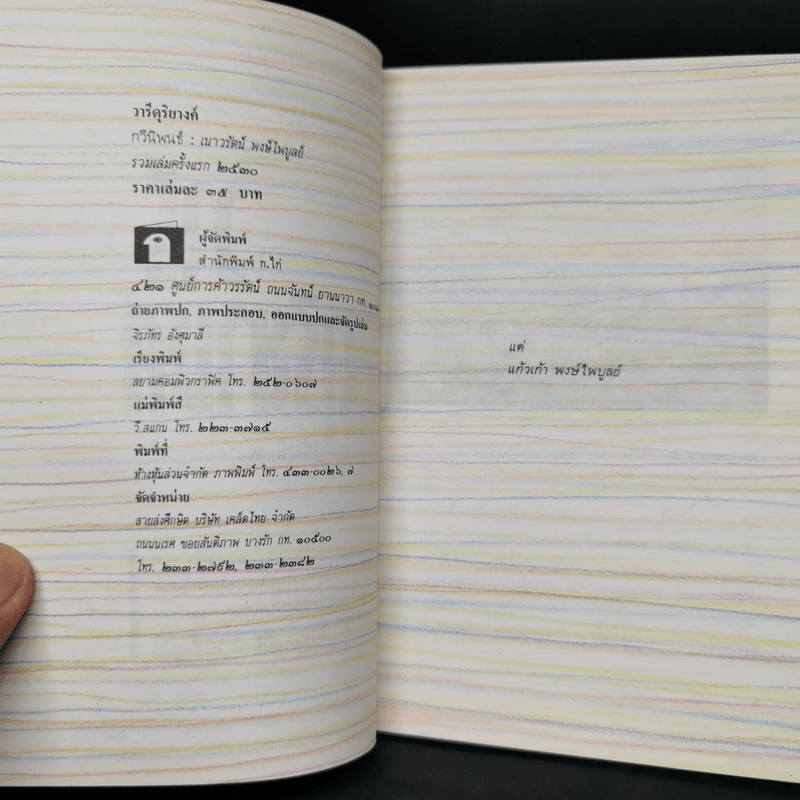 วารีดุริยางค์
กวีนิพนธ์ : เนาวรัตน์ พงษ์ไพบูลย์
รวมเล่มครั้งแรก ๒๕๓๐
ราคาเล่มละ ๓๕ บาท
ผู้จัดพิมพ์
สำนักพิมพ์ ก.ไก่
๔๒๑ ศูนย์การค้าวรรัตน์ ถนนจันทน์ ยานนาวา กท.
ถ่ายภาพปก, ภาพประกอบ, ออกแบบปกและจัดรูปเล่ม
จิรภัทร อังศุมาลี
เรียงพิมพ์
สยามคอมพิวกราฟิค โทร. ๒๕๒-๐๖๐๗
แม่พิมพ์สี
วี.สแกน โทร. ๒๒๓-๓๗๑๕
พิมพ์ที่
ห้างหุ้นส่วนจำกัด ภาพพิมพ์ โทร. ๔๓๓-๐๐๒๖, ๗
จัดจำหน่าย
สายส่งศึกษิต บริษัท เคล็ดไทย จำกัด
ถนนนเรศ ซอยสันติภาพ บางรัก กท. ๑๐๕๐๐
โทร. ๒๓๓-๒๗๙๒, ๒๓๓-๒๓๘๒
แต่
แก้วเก้า พงษ์ไพบูลย์